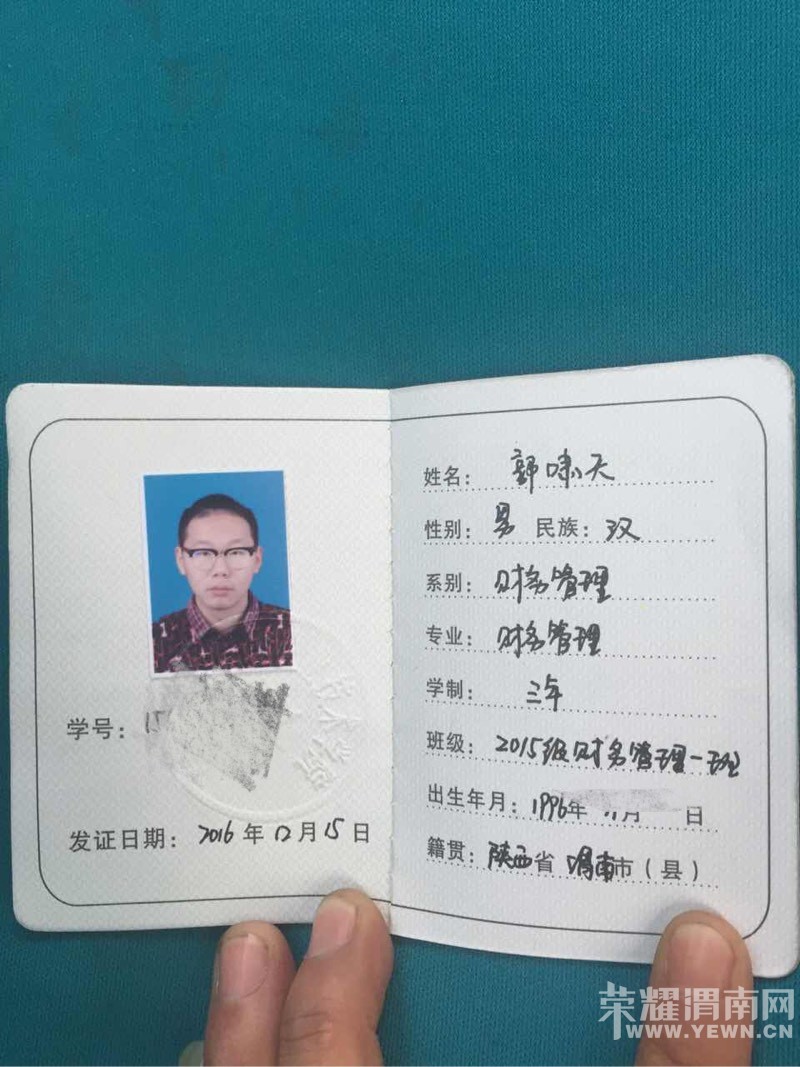 学号：15
发证日期：2016年12月15日
姓名：郭啸天
性别：男 民族：汉
系别：财务管理
专业：财务管理
学制：三年
班级：2015级财务管理一班
出生年月：1996年 月 日
籍贯：陕西省渭南市（县）
荣耀渭南网
WWW.YEWN.CN